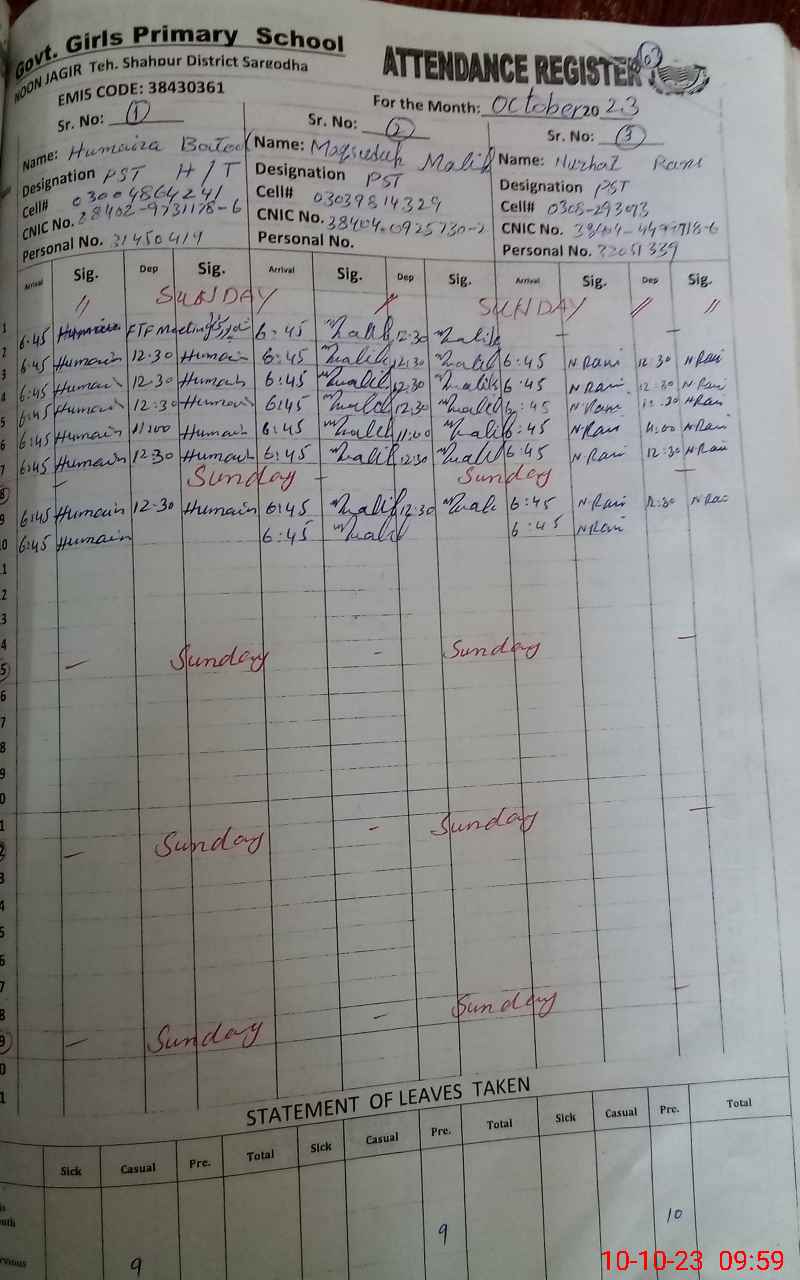 Govt. Girls Primary School
NOON JAGIR Teh. Shahpur District Sargodha
ATTENDANCE REGISTER
EMIS CODE: 38430361
For the Month: October 2023
Sr. No: 1 Sr. No: 2 Sr. No: 3
Name: Humaira Batool Name: Maqsudah Malik Name: Nuzhat Rani
Designation PST H/T Designation PST Designation PST
Cell# 03004864241 Cell# 03039814329 Cell# 0308-293093
CNIC No. 38402-9731178-6 CNIC No. 38404-0925730-2 CNIC No.
Personal No. 31450419 Personal No. Personal No. 32051339
Arrival Sig. Dep Sig. Arrival Sig. Dep Sig. Arrival Sig. Dep Sig.
1 // SUNDAY // SUNDAY // //
2 6:45 Humaira FTF Meeting 6:45 Malik 12:30 Malik — —
3 6:45 Humain 12:30 Humain 6:45 Malik 12:30 Malik 6:45 N.Rani 12:30 N.Rani
4 6:45 Humain 12:30 Humain 6:45 Malik 12:30 Malik 6:45 N.Rani 12:30 N.Rani
5 6:45 Humain 12:30 Humain 6:45 Malik 12:30 Malik 6:45 N.Rani 12:30 N.Rani
6 6:45 Humain 11:00 Humain 6:45 Malik 11:00 Malik 6:45 N.Rani 11:00 N.Rani
7 6:45 Humain 12:30 Humain 6:45 Malik 12:30 Malik 6:45 N.Rani 12:30 N.Rani
8 — Sunday — Sunday —
9 6:45 Humain 12:30 Humain 6:45 Malik 12:30 Malik 6:45 N.Rani 12:30 N.Rani
0 6:45 Humain 6:45 Malik 6:45 N.Rani
1
2
3
4
5 — Sunday - Sunday —
6
7
8
9
0
1
2 — Sunday - Sunday —
3
4
5
6
7
8
9 — Sunday — Sunday —
0
1
STATEMENT OF LEAVES TAKEN
Sick Casual Pre. Total Sick Casual Pre. Total Sick Casual Pre. Total
9 9 10
10-10-23 09:59